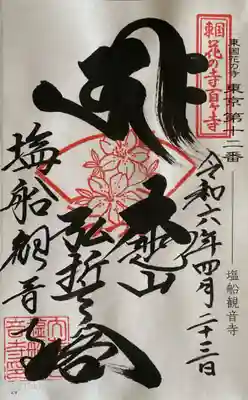 東国花の寺百ヶ寺
東国花の寺 東京第十二番 ― 塩船観音寺
令和六年四月二十三日
大悲山
弘誓塔
塩船観音寺